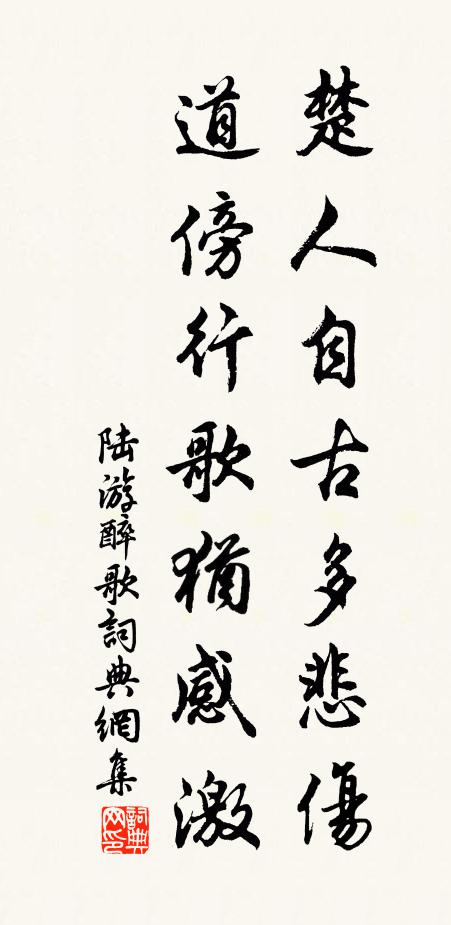 楚人自古多悲傷
道傍行歌猶感激
陆游醉歌詞典網集
詞典网印